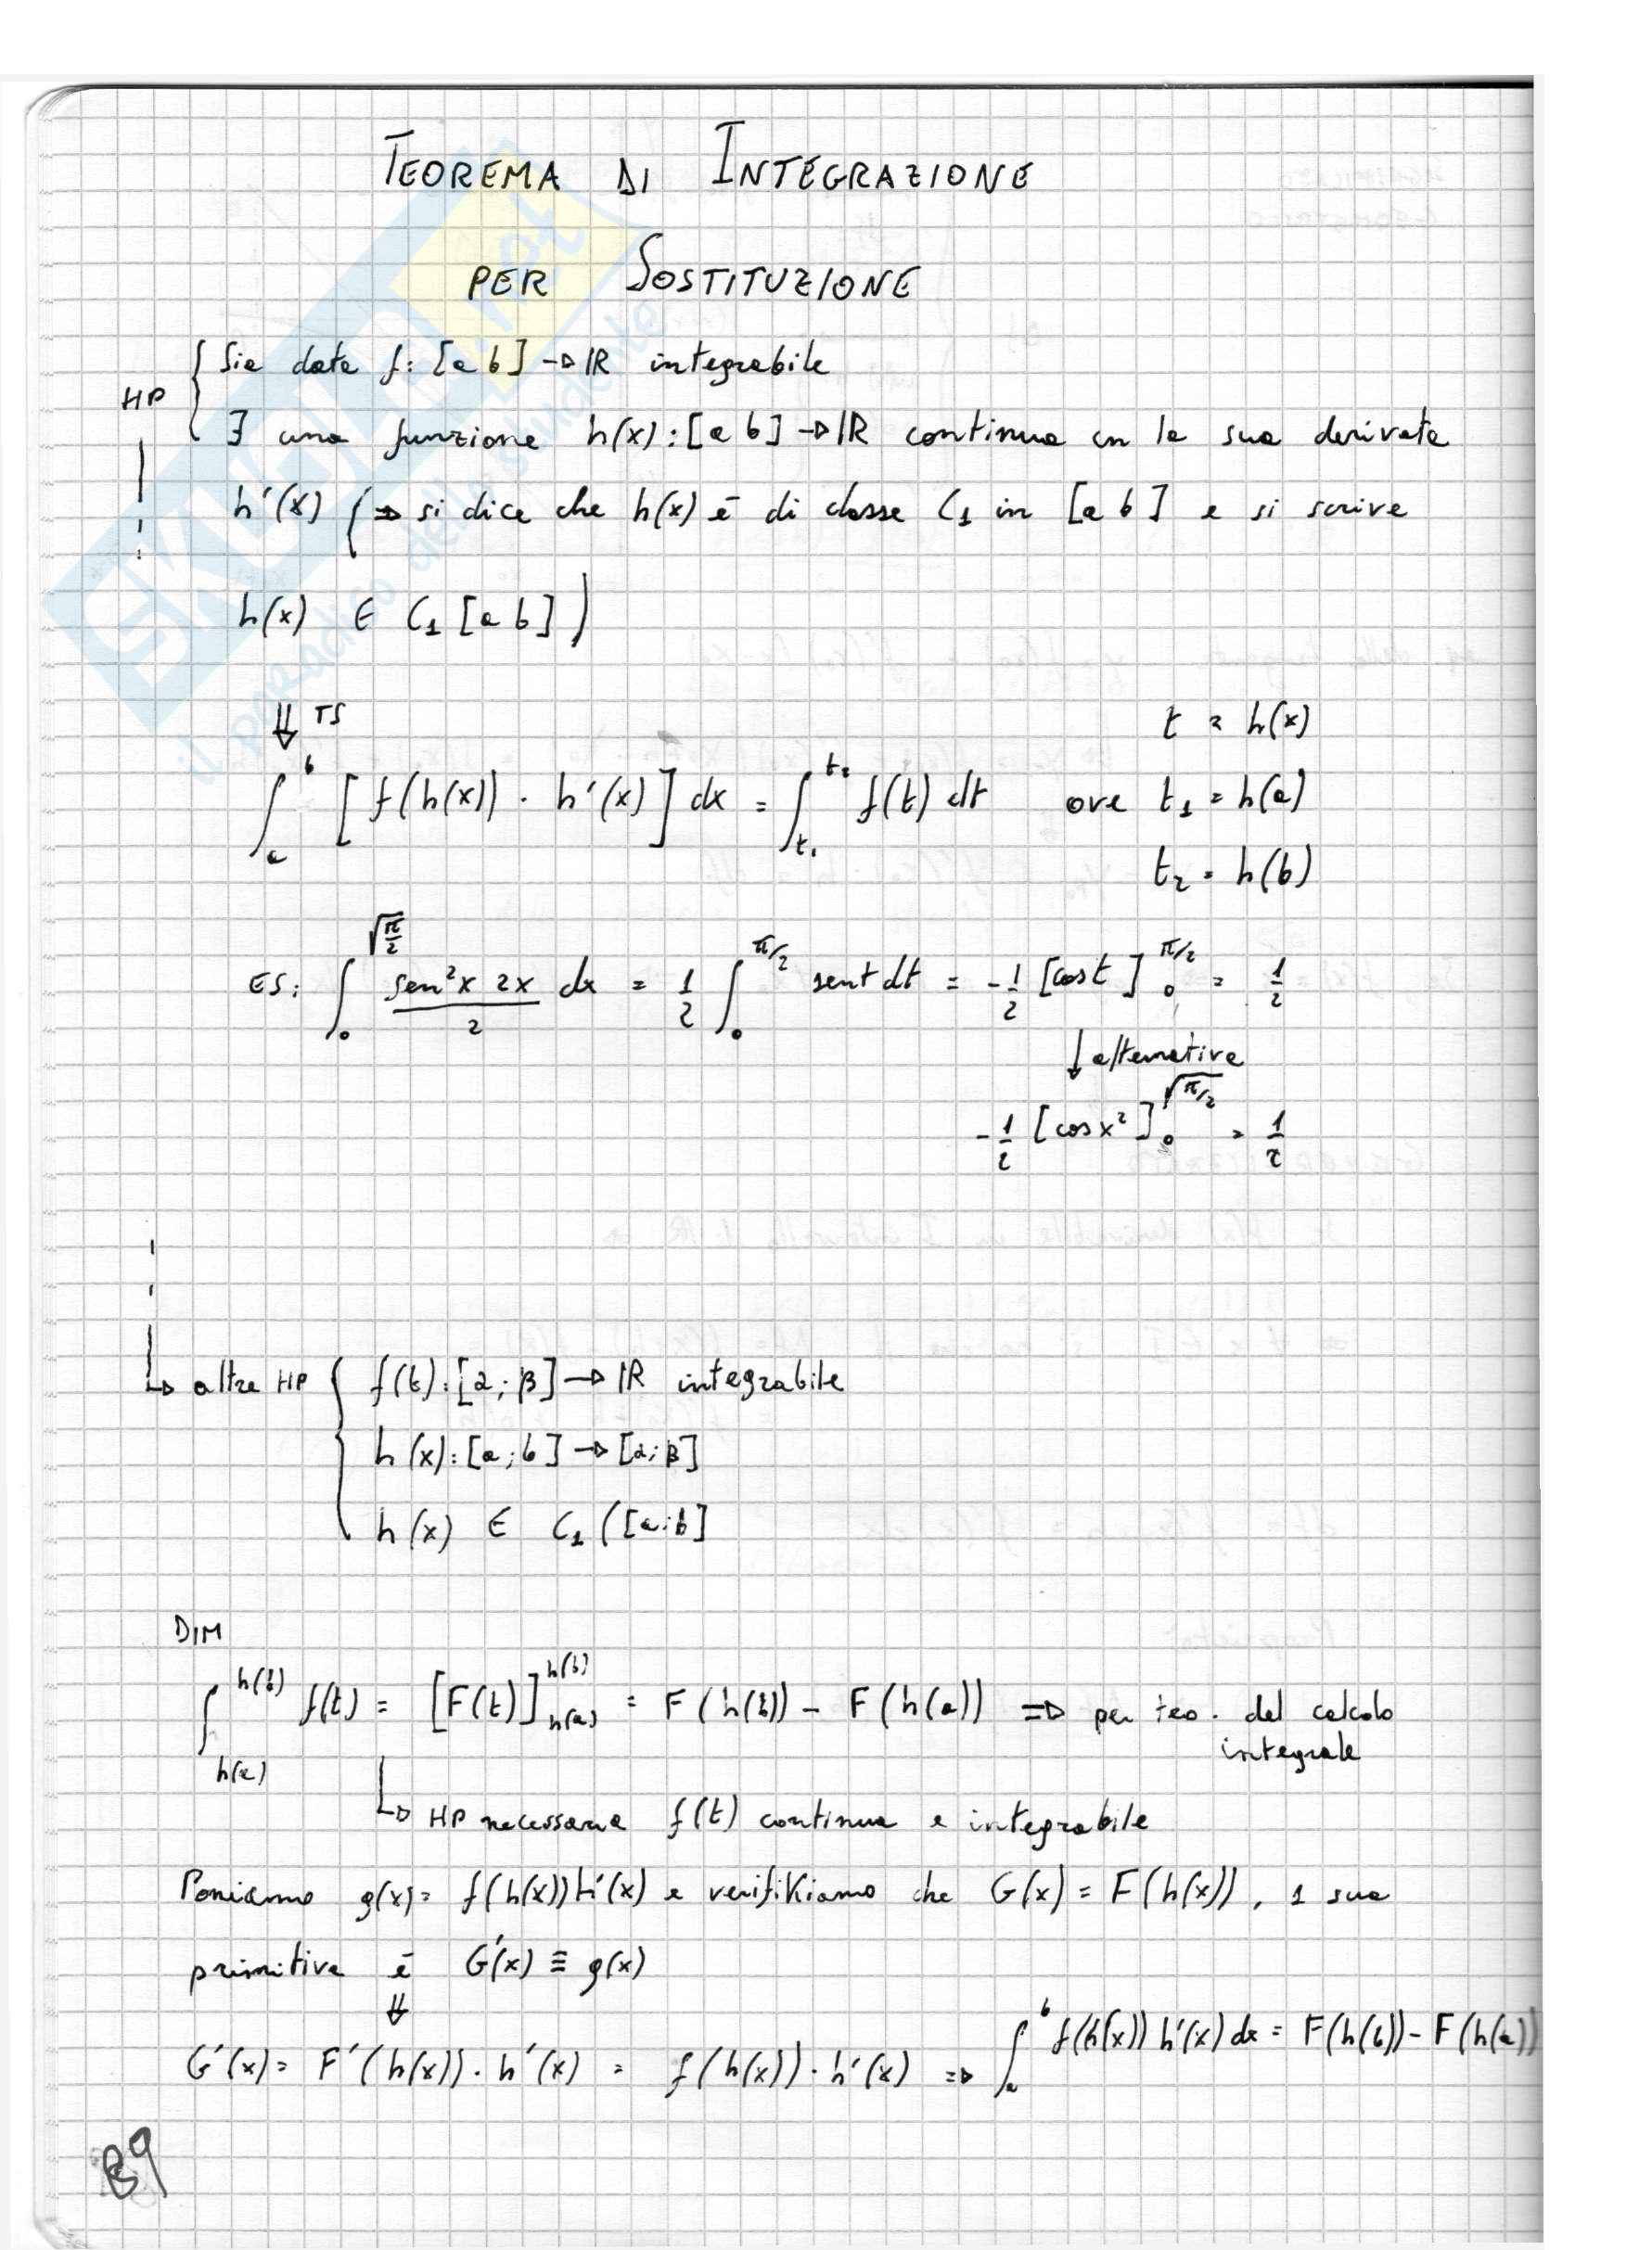 TEOREMA DI INTEGRAZIONE
PER SOSTITUZIONE
HP { Sia data f: [a b] → ℝ integrabile
∃ una funzione h(x): [a b] → ℝ continua con la sua derivata
h'(x) (⇒ si dice che h(x) è di classe C₁ in [a b] e si scrive
h(x) ∈ C₁ [a b])
⇓ TS
t = h(x)
∫ₐᵇ [f(h(x)) · h'(x)] dx = ∫ₜ₁ᵗ² f(t) dt ove t₁ = h(a)
t₂ = h(b)
ES: ∫₀^√(π/2) (sen²x 2x)/2 dx = 1/2 ∫₀^π/2 sent dt = -1/2 [cost]₀^π/2 = 1/2
↓ alternativa
-1/2 [cosx²]₀^√π/2 = 1/2
↳ altre HP { f(t): [α; β] → ℝ integrabile
h(x): [a; b] → [α; β]
h(x) ∈ C₁ ([a; b]
DIM
∫_h(a)^h(b) f(t) = [F(t)]_h(a)^h(b) = F(h(b)) - F(h(a)) ⇒ per teo. del calcolo
integrale
↳ HP necessaria f(t) continua e integrabile
Poniamo g(x) = f(h(x))h'(x) e verifikiamo che G(x) = F(h(x)), 1 sua
primitiva è G'(x) ≡ g(x)
⇓
G'(x) = F'(h(x)) · h'(x) = f(h(x)) · h'(x) ⇒ ∫ₐᵇ f(h(x)) h'(x) dx = F(h(b)) - F(h(a))
89
SKUOLA.net
il paradiso dello studente